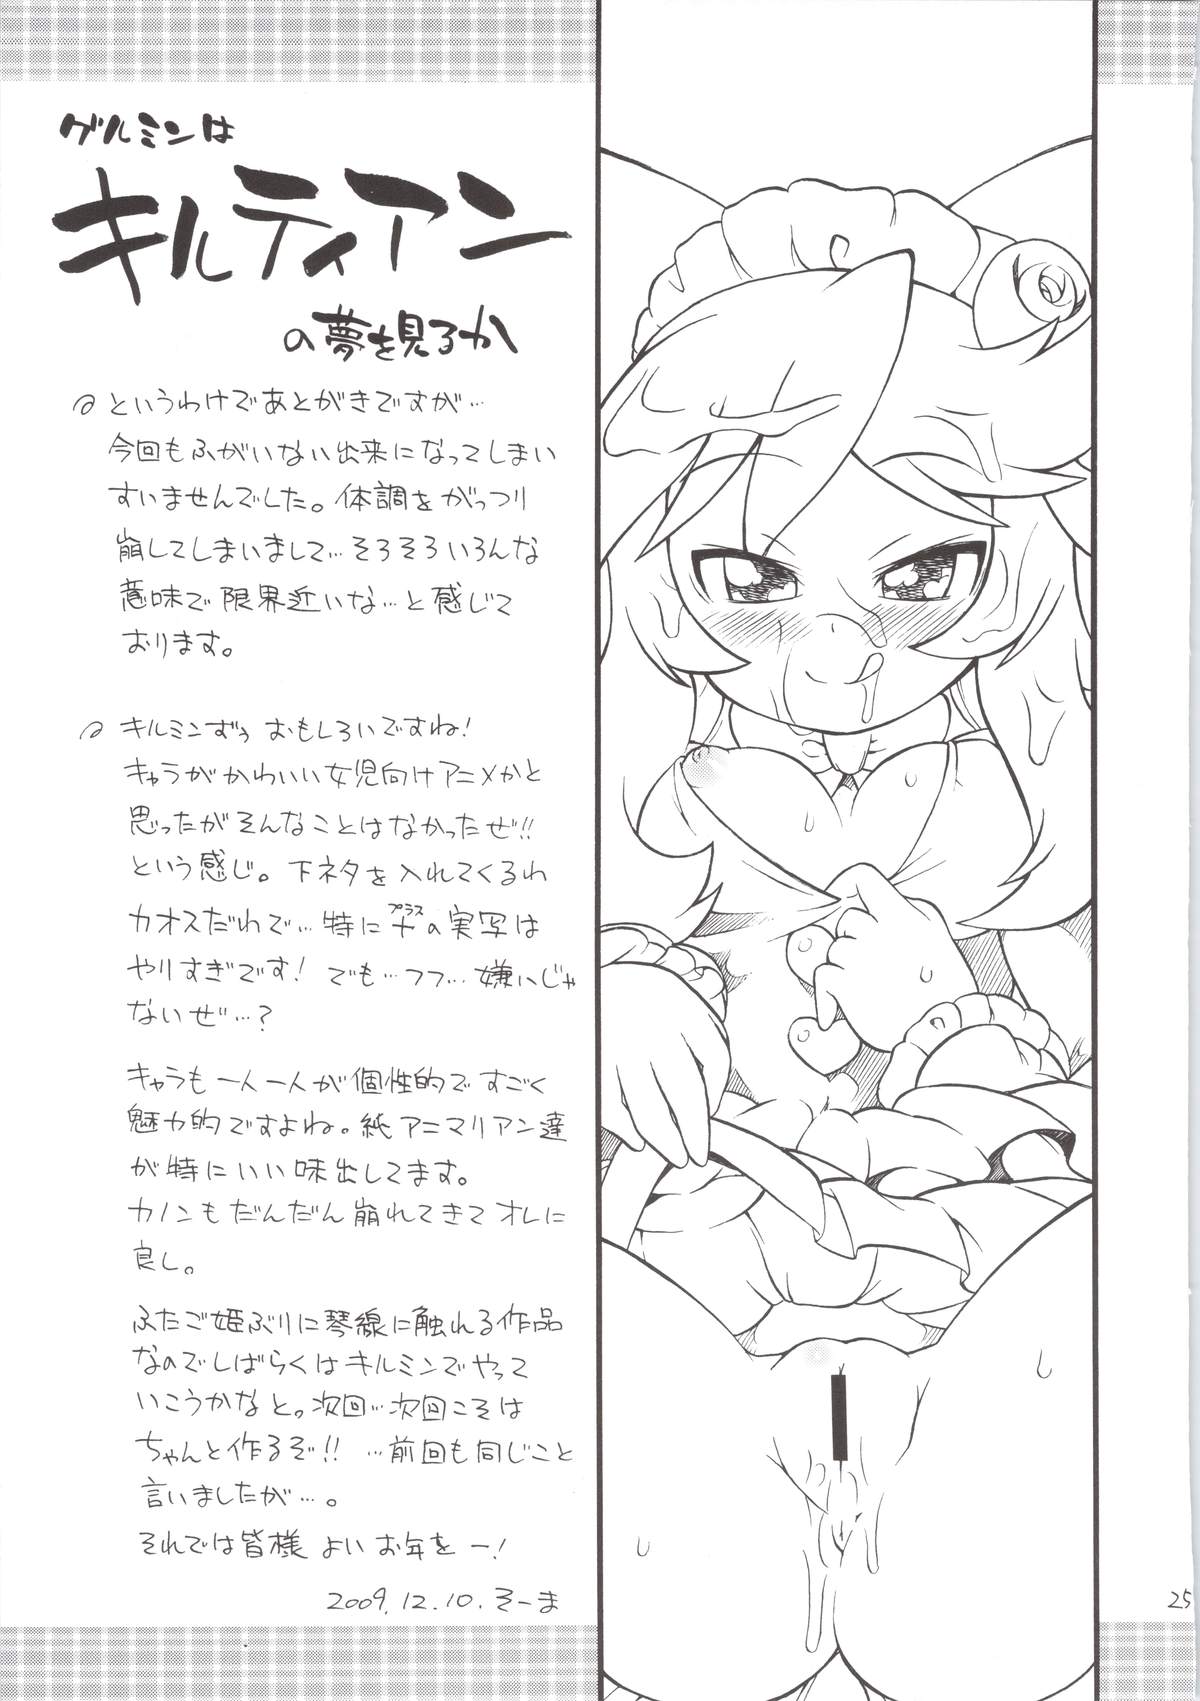 ゲルミンは
キルティアン
の夢を見るか
というわけであとがきですが…
今回もふがいない出来になってしまい
すいませんでした。体調をがっつり
崩してしまいまして…そろそろいろんな
意味で限界近いな…と感じて
おります。
キルミンずぅ おもしろいですね!
キャラがかわいい女児向けアニメかと
思ったがそんなことはなかったぜ!!
という感じ。下ネタを入れてくるわ
カオスだわで…特に十の実写は
プラス
やりすぎです! でも…フフ…嫌いじゃ
ないぜ…?
キャラも一人一人が個性的ですごく
魅力的ですよね。純アニマリアン達
が特にいい味出してます。
カノンもだんだん崩れてきてオレに
良し。
ふたご姫ぶりに琴線に触れる作品
なのでしばらくはキルミンでやって
いこうかなと。次回…次回こそは
ちゃんと作るぞ!! …前回も同じこと
言いましたが…。
それでは皆様 よいお年をー!
2009.12.10.そーま
25